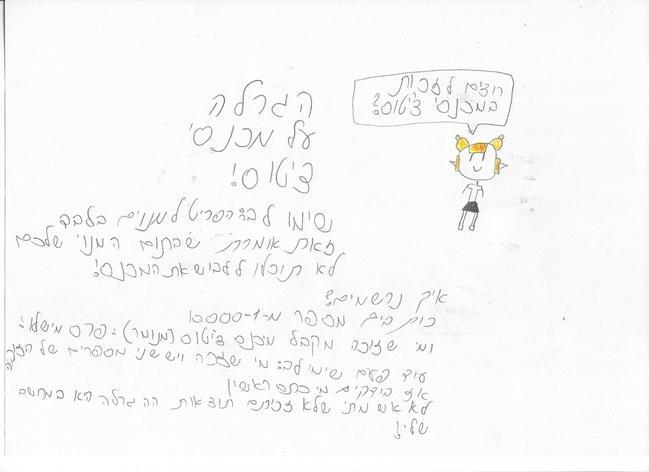 רוצים לזכות
במכנסי צ'יטוס?
הגרלה
על מכנסי
צ'יטוס!
שימו לב: הפריט למנוים בלבד
זאת אומרת שבתום המנוי שלכם
לא תוכלו ללבוש את המכנס!
איך נרשמים?
מספר מ-1-10000
ומי שזוכה מקבל מכנס צ'יטוס (מנומר) - פרס
עוד פעם שימו לב: מי שזכה ויש שני מספרים של הזוכה
אז בודקים מי כתב ראשון
לא אשמתי שלא זכיתם תוצאות ההגרלה היא במחשב
שלי!